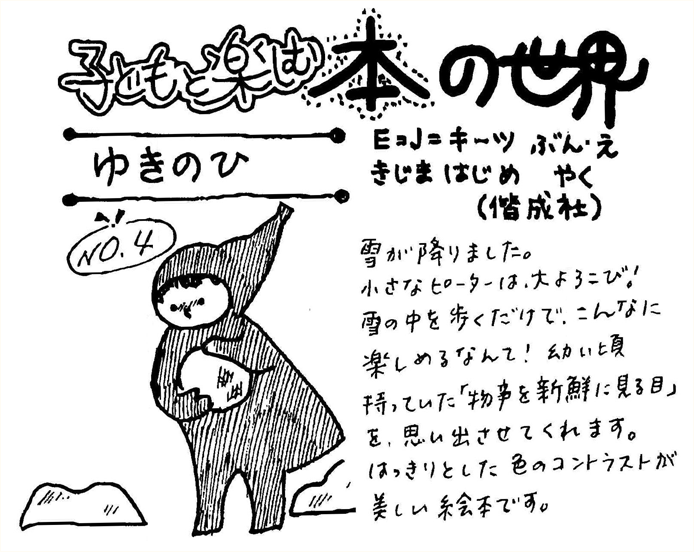 子どもと楽しむ本の世界
ゆきのひ
E=J=キーツ ぶん・え
きじま はじめ やく
(偕成社)
NO.4
雪が降りました。
小さなピーターは、大よろこび!
雪の中を歩くだけで、こんなに
楽しめるなんて! 幼い頃
持っていた「物事を新鮮に見る目」
を、思い出させてくれます。
はっきりとした色のコントラストが
美しい絵本です。